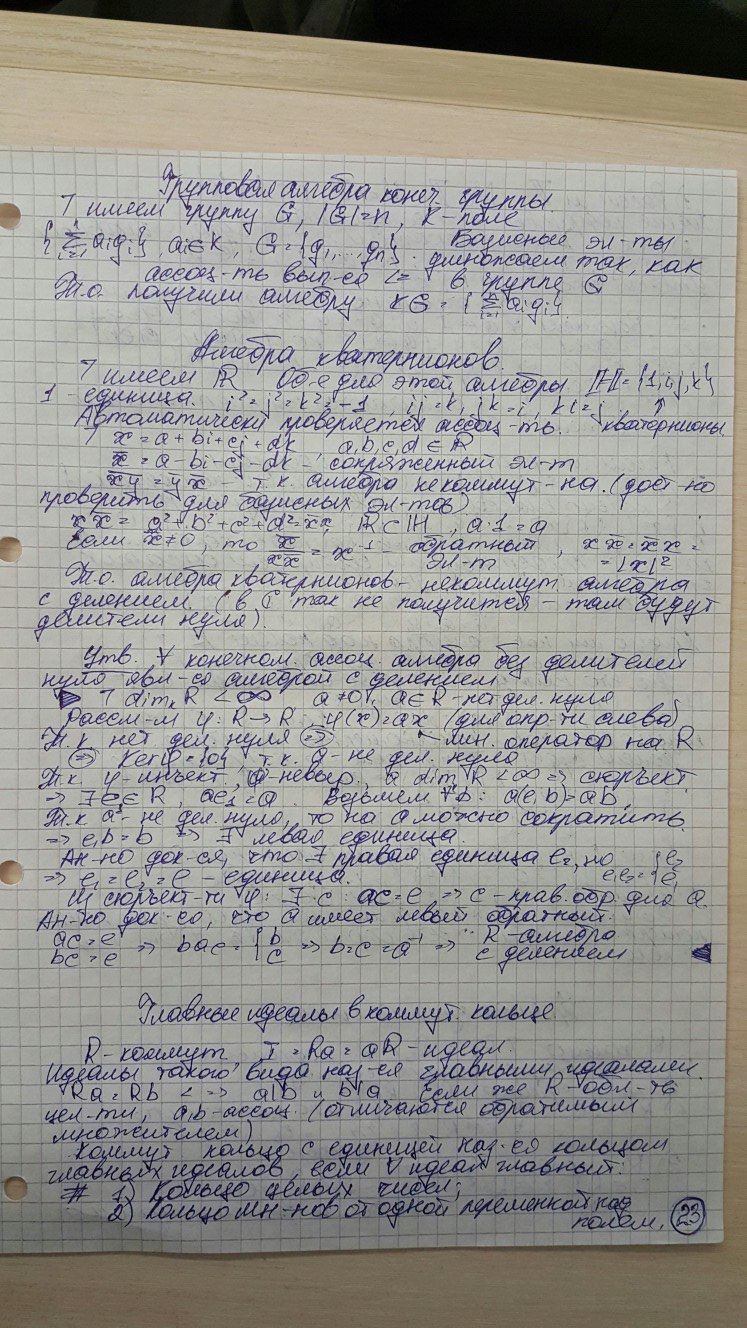 Групповая алгебра конеч. группы.
] имеем группу G, |G|=n, K - поле
{∑ᵢ₌₁ⁿ aᵢgᵢ}, aᵢ∈K, G = {g₁,...,gₙ}. Базисные эл-ты
умножаем так, как
ассоц-ть вып-ся <= в группе G
Т.о. получили алгебру KG = {∑ᵢ₌₁ⁿ aᵢgᵢ}
Алгебра кватернионов.
] имеем ℝ. Об-е для этой алгебры ℍ = {1,i,j,k}
1 - единица. i²=j²=k²=-1, ij=k, jk=i, ki=j
Автоматически проверяется ассоц-ть. кватернионы.
x = a+bi+cj+dk, a,b,c,d ∈ ℝ
x̄ = a-bi-cj-dk - сопряженный эл-т
x̄ȳ = ȳx̄ - т.к. алгебра некоммут-на. (дост-но
проверить для базисных эл-тов)
xx̄ = a²+b²+c²+d² = x̄x, ℝ⊂ℍ, a·1=a
Если x≠0, то x̄/xx̄ = x⁻¹ обратный эл-т, xx̄ = x̄x =
= |x|²
Т.о. алгебра кватернионов - некоммут. алгебра
с делением. (в ℂ так не получится - там будут
делители нуля).
Утв. ∀ конечном. ассоц. алгебра без делителей
нуля явл-ся алгеброй с делением.
▶ ] dimₖ R < ∞ a≠0, a∈R - не дел. нуля
Рассм-м φ: R→R φ(x)=ax (для опр-ти слева)
Т.к. нет дел. нуля => лин. оператор на R
=> Ker φ = {0}, т.к. a - не дел. нуля
Т.к. φ - инъект, φ - невыр., а dim R < ∞ => сюръект.
=> ∃ e₁∈R, ae₁=a. Возьмем ∀b: a(e₁b)=ab,
Т.к. a - не дел. нуля, то на a можно сократить.
=> e₁b=b => ∃ левая единица.
Ан-но док-ся, что ∃ правая единица e₂, но
=> e₁=e₂=e - единица. e₁e₂={e₂ e₁
Из сюръект-ти φ: ∃ c: ac=e => c - прав. обр. для a.
Ан-но док-ся, что a имеет левый обратный.
ac=e
ba=e => bac={b c => b=c=a⁻¹ => R - алгебра
с делением ◀
Главные идеалы в коммут. кольце
R - коммут. I = Ra = aR - идеал.
Идеалы такого вида наз-ся главными идеалами.
Ra=Rb <=> a|b и b|a. Если же R - обл-ть
цел-ти, a,b - ассоц. (отличаются обратимым
множителем)
Коммут. кольцо с единицей наз-ся кольцом
главных идеалов, если ∀ идеал главный.
# 1) Кольцо целых чисел;
2) Кольцо мн-нов от одной переменной над
полем.
23